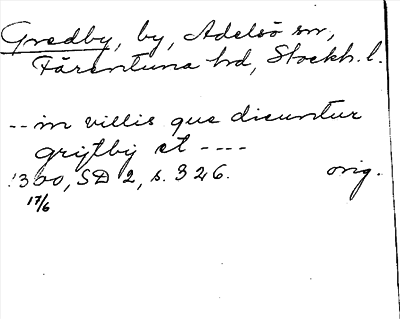 Gredby, by, Adelsö sn,
Färentuna hd, Stockh. l.
-- in villis que dicuntur
griftbij et ----
1300, SD 2, s. 326. orig.
17/6